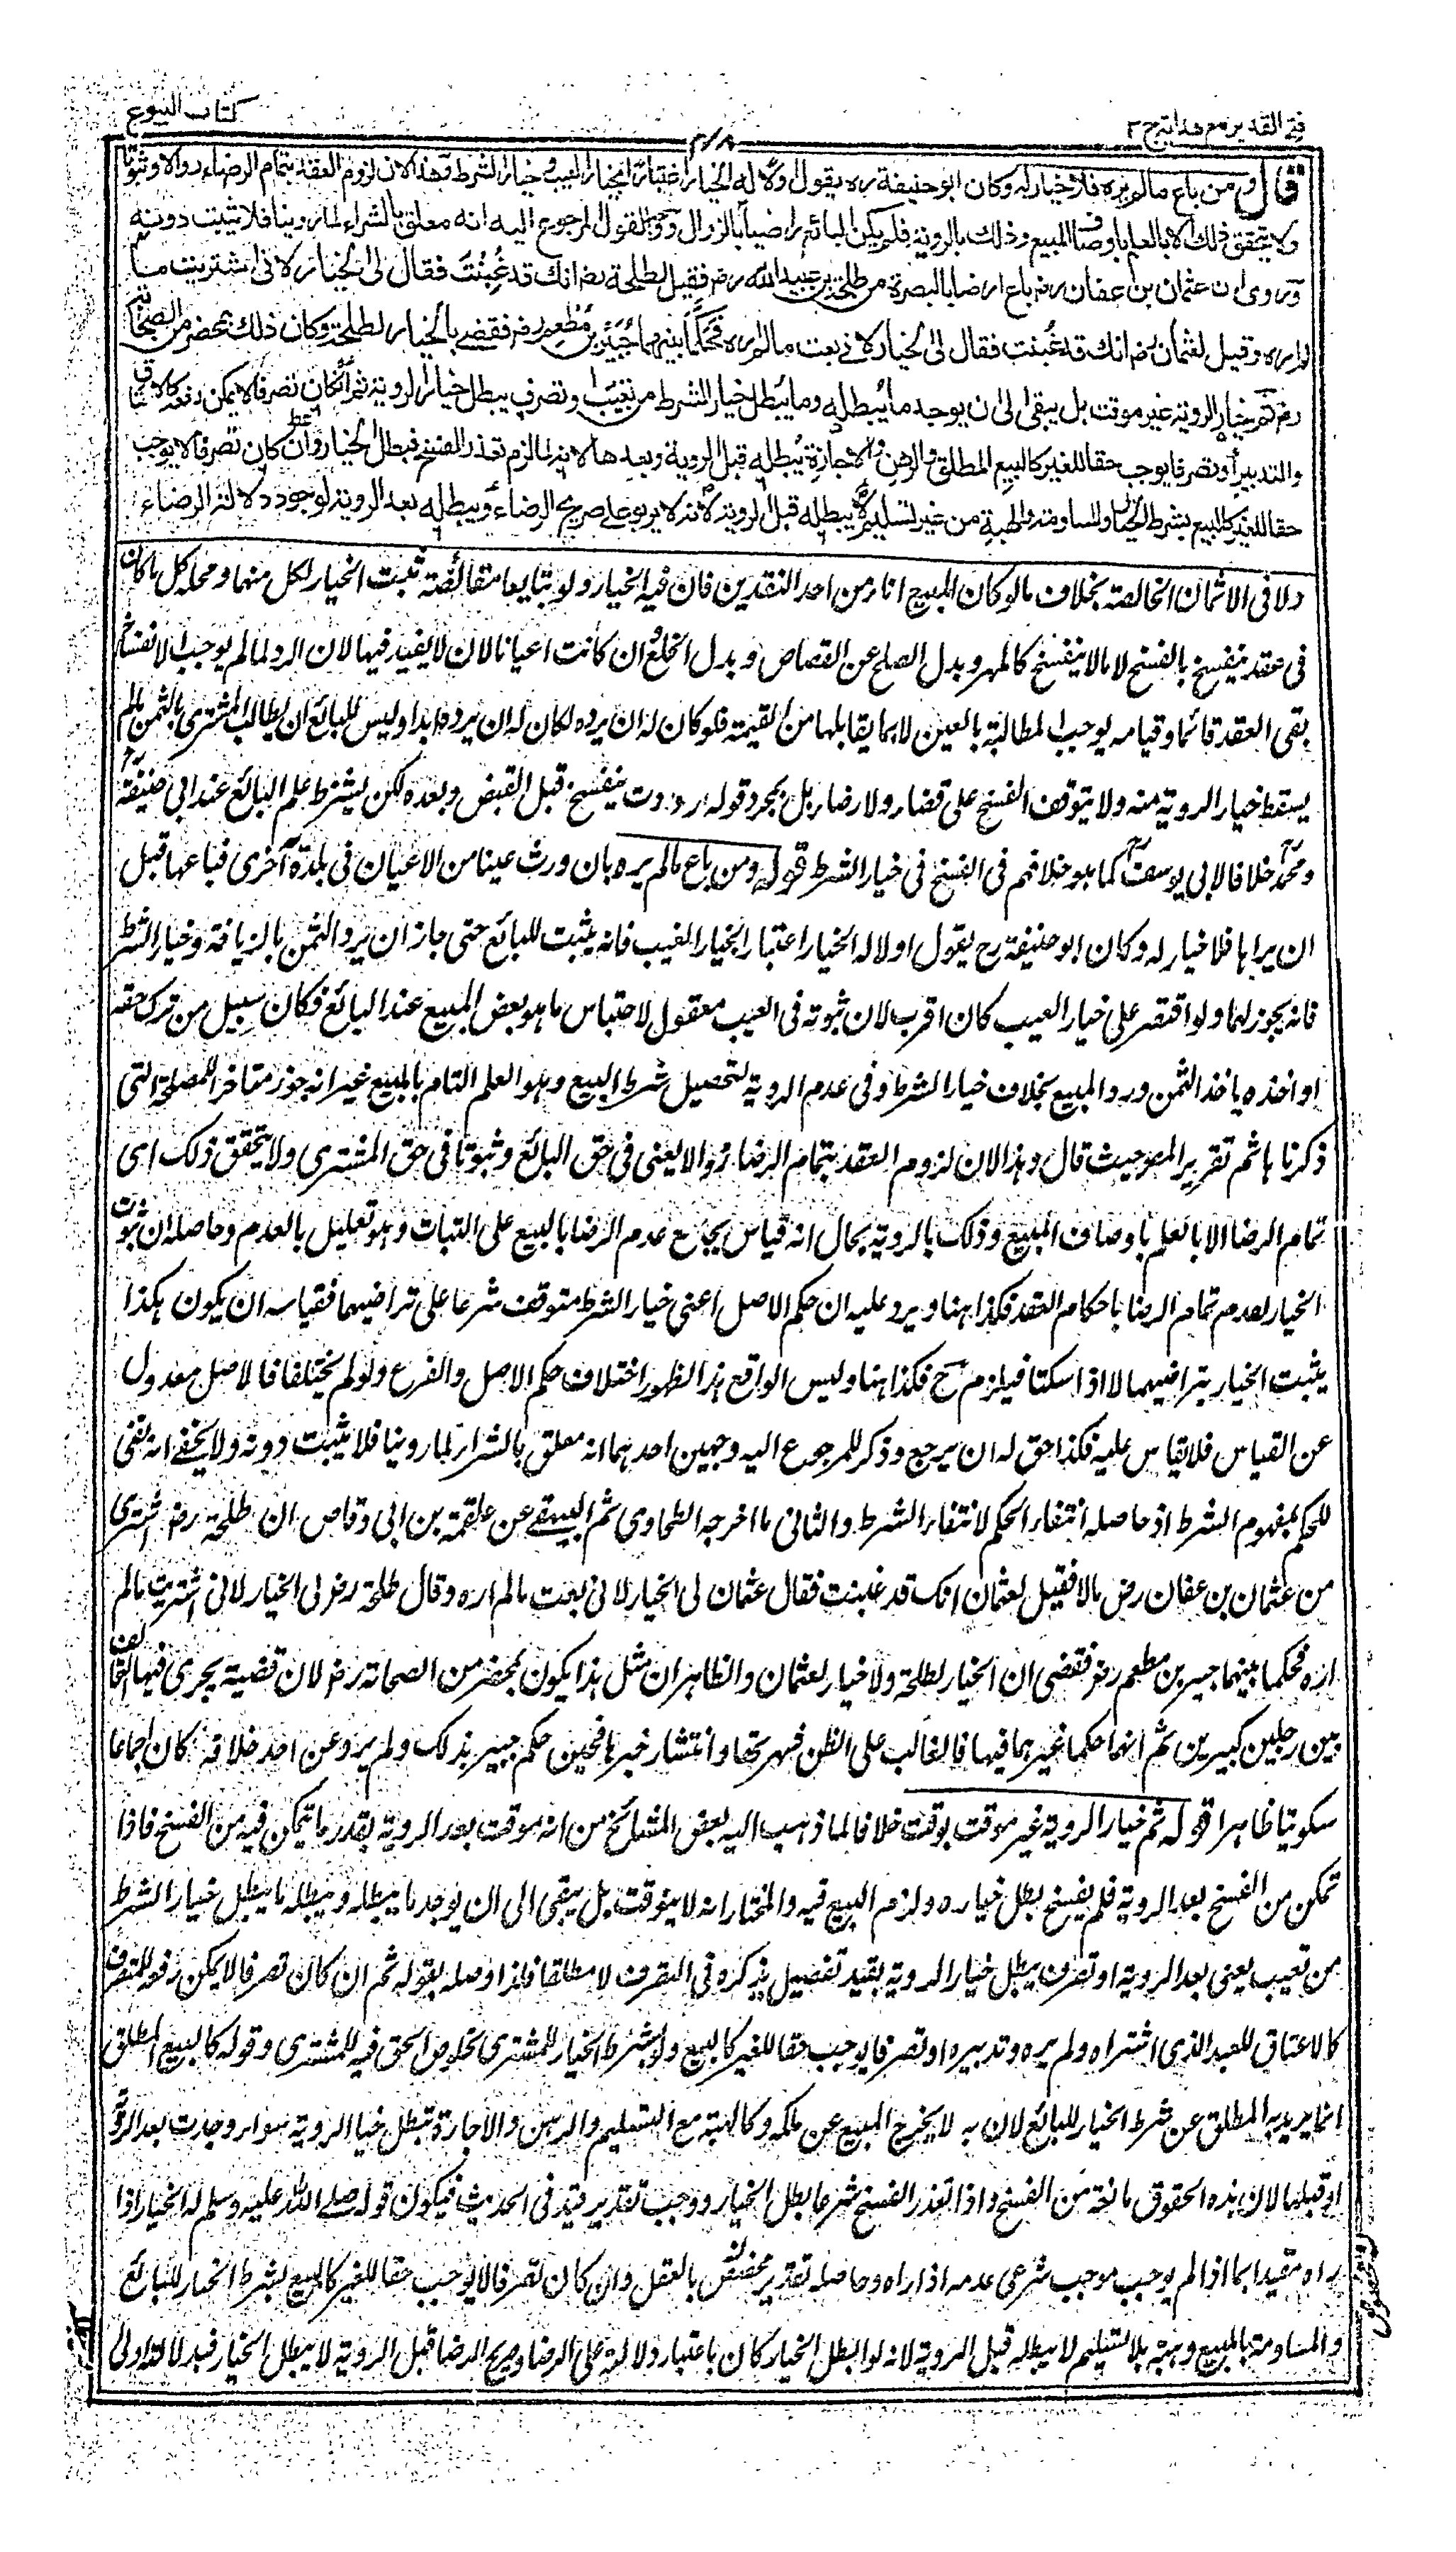 فتح القدير مع هدايه ج ٣
كتاب البيوع
قال ومن باع مالم يره فلا خيار له وكان ابو حنيفة ره يقول اولا له الخيار اعتبارا بخيار العيب وخيار الشرط وهذا لان لزوم العقد بتمام الرضاء زوالا وثبوتا
ولا يتحقق ذلك الا بالعلم باوصاف المبيع وذلك بالرويه فلم يكن البائع راضيا بالزوال ووجه القول المرجوع اليه انه معلق بالشراء لما روينا فلا يثبت دونه
وروى ان عثمان بن عفان رض باع ارضا بالبصرة من طلحة بن عبيد الله رض فقيل لطلحة رض انك قد غبنت فقال لى الخيار لانى اشتريت ما
لم اره وقيل لعثمان رض انك قد غبنت فقال لى الخيار لانى بعت مالم اره فحكما بينهما جبير بن مطعم رض فقضے بالخيار لطلحة وكان ذلك بمحضر من الصحابة
رض ثم خيار الروية غير موقت بل يبقى الى ان يوجد ما يبطله وما يبطل خيار الشرط من تعيب او تصرف يبطل خيار الروية ثم ان كان تصرفا لا يمكن رفعه كالاعتاق
والتدبير او تصرفا يوجب حقا للغير كالبيع المطلق والرهن والاجازة يبطله قبل الروية وبعدها لانه لما لزم تعذر الفسخ فبطل الخيار وان كان تصرفا لا يوجب
حقا للغير كالبيع بشرط الخيار والمساومة والهبة من غير تسليم لا يبطله قبل الروية لانه لا يربو على صريح الرضاء ويبطله بعد الروية لوجود دلالة الرضاء
ولا فى الاثمان الخالصة بخلاف مالو كان المبيع اناء من احد النقدين فان فيه الخيار ولو تبايعا مقائضة ثبت الخيار لكل منهما ومحله كل ما كان
فى عقد ينفسخ بالفسخ لا مالا ينفسخ كالمهر وبدل الصلح عن القصاص وبدل الخلع وان كانت اعيانا لانه لا يفيد فيها لان الرد لما لم يوجب الانفساخ
بقى العقد قائما وقيامه يوجب المطالبة بالعين لا بما يقابلها من القيمة فلو كان له ان يرده لكان له ان يرده ابدا وليس للبائع ان يطالب المشترى بالثمن مالم
يسقط خيار الروية منه ولا يتوقف الفسخ على قضاء ولا رضاء بل بمجرد قوله رددت ينفسخ قبل القبض وبعده لكن يشترط علم البائع عند ابى حنيفة
ومحمد خلافا لابى يوسف كما هو خلافهم فى الفسخ فى خيار الشرط قوله ومن باع مالم يره بان ورث عينا من الاعيان فى بلدة اخرى فباعها قبل
ان يراها فلا خيار له وكان ابو حنيفة رح يقول اولا له الخيار اعتبارا بخيار العيب فانه يثبت للبائع حتى جاز ان يرد الثمن بالزيافة وخيار الشرط
فانه يجوز لهما ولو اقتصر على خيار العيب كان اقرب لان ثبوته فى العيب معقول لاحتباس ما هو بعض المبيع عند البائع فكان سبيل من ترك حقه
او اخذه ياخذ الثمن ورد المبيع بخلاف خيار الشرط وفى عدم الروية لتحصيل شرط البيع وهو العلم التام بالمبيع غير انه جوز متاخرا للمصلحة التى
ذكرناها ثم تقرير المص حيث قال وهذا لان لزوم العقد بتمام الرضاء زوالا يعنى فى حق البائع وثبوتا فى حق المشترى ولا يتحقق ذلك اى
تمام الرضا الا بالعلم باوصاف المبيع وذلك بالروية بحال انه قياس بجامع عدم الرضا بالبيع على الثبات وهو تعليل بالعدم وحاصله ان ثبوت
الخيار لعدم تمام الرضا باحكام العقد فكذا هنا ويرد عليه ان حكم الاصل اعنى خيار الشرط متوقف شرعا على تراضيهما فقياسه ان يكون هكذا
يثبت الخيار بتراضيهما لا اذا سكتا فيلزم ح فكذا هنا وليس الواقع هذا لظهور اختلاف حكم الاصل والفرع ولو لم يختلفا فالاصل معدول
عن القياس فلا يقاس عليه فكذا حق له ان يرجع وذكر للمرجوع اليه وجهين احدهما انه معلق بالشراء لما روينا فلا يثبت دونه ولا يخفے انه نفى
للحكم بمفهوم الشرط اذ حاصله انتفاء الحكم لانتفاء الشرط والثانى ما اخرجه الطحاوى ثم البيهقے عن علقمة بن ابى وقاص ان طلحة رض اشترى
من عثمان بن عفان رض مالا فقيل لعثمان انك قد غبنت فقال عثمان لى الخيار لانى بعت مالم اره وقال طلحة رض لى الخيار لانى اشتريت مالم
اره فحكما بينهما جبير بن مطعم رض فقضى ان الخيار لطلحة ولا خيار لعثمان والظاهر ان مثل هذا يكون بمحضر من الصحابة رض لان قضية يجرى فيها التخالف
بين رجلين كبيرين ثم انهما حكما غيرهما فيها فالغالب على الظن شهرتها وانتشار خبرها فحين حكم جبير بذلك ولم يرو عن احد خلافه كان اجماعا
سكوتيا ظاهرا قوله ثم خيار الروية غير موقت بوقت خلافا لما ذهب اليه بعض المشائخ من انه موقت بعد الروية بقدر ما يتمكن فيه من الفسخ فاذا
تمكن من الفسخ بعد الروية فلم يفسخ بطل خياره ولزم البيع فيه والمختار انه لا يتوقت بل يبقى الى ان يوجد ما يبطله ويبطله ما يبطل خيار الشرط
من تعيب يعنى بعد الروية او تصرف يبطل خيار الروية بقيد تفصيل يذكره فى التصرف لا مطلقا فلذا وصله بقوله ثم ان كان تصرفا لا يمكن رفعه للمتصرف
كالاعتاق للعبد الذى اشتراه ولم يره وتدبيره او تصرفا يوجب حقا للغير كالبيع ولو بشرط الخيار للمشترى لخلوص الحق فيه للمشترى وقوله كالبيع المطلق
انما يريد به المطلق عن شرط الخيار للبائع لان به لا يخرج المبيع عن ملكه وكالهبة مع التسليم والرهن والاجارة تبطل خيار الروية سواء وجدت بعد الروية
او قبلها لان هذه الحقوق مانعة من الفسخ واذا تعذر الفسخ شرعا بطل الخيار ووجب تقدير قيد فى الحديث فيكون قوله صلے الله عليه وسلم له الخيار اذا
راه مقيدا بما اذا لم يوجب موجب شرعى عدمه اذا راه وحاصله تقدير مخصص بالعقل وان كان تصرفا لا يوجب حقا للغير كالبيع بشرط الخيار للبائع
والمساومة بالمبيع وهبة بلا تسليم لا يبطله قبل الروية لانه لو ابطل الخيار كان باعتبار دلالته على الرضا وصريح الرضا قبل الروية لا يبطل الخيار فبدلالته اولى